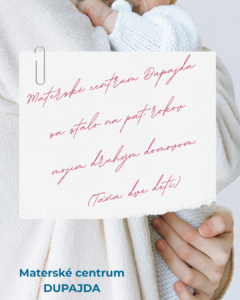 Materské centrum Dupajda
sa stalo na päť rokov
mojím druhým domovom
(Táňa, dve deti)
Materské centrum
DUPAJDA